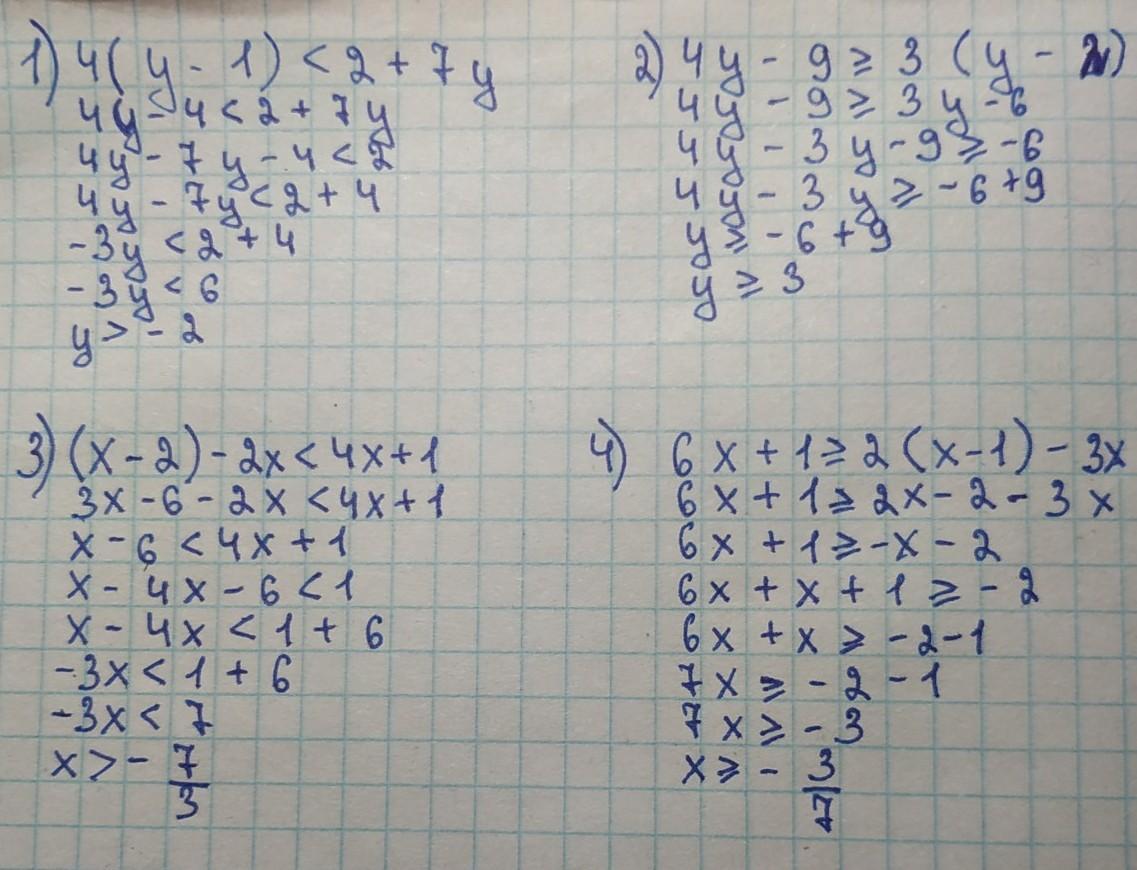 1) 4(y - 1) < 2 + 7y
4y - 4 < 2 + 7y
4y - 7y - 4 < 2
4y - 7y < 2 + 4
-3y < 2 + 4
-3y < 6
y > - 2
2) 4y - 9 ≥ 3 (y - 2)
4y - 9 ≥ 3y - 6
4y - 3y - 9 ≥ -6
4y - 3y ≥ - 6 + 9
y ≥ - 6 + 9
y ≥ 3
3) (x - 2) - 2x < 4x + 1
3x - 6 - 2x < 4x + 1
x - 6 < 4x + 1
x - 4x - 6 < 1
x - 4x < 1 + 6
-3x < 1 + 6
-3x < 7
x > - 7/3
4) 6x + 1 ≥ 2 (x - 1) - 3x
6x + 1 ≥ 2x - 2 - 3x
6x + 1 ≥ -x - 2
6x + x + 1 ≥ - 2
6x + x ≥ - 2 - 1
7x ≥ - 2 - 1
7x ≥ - 3
x ≥ - 3/7